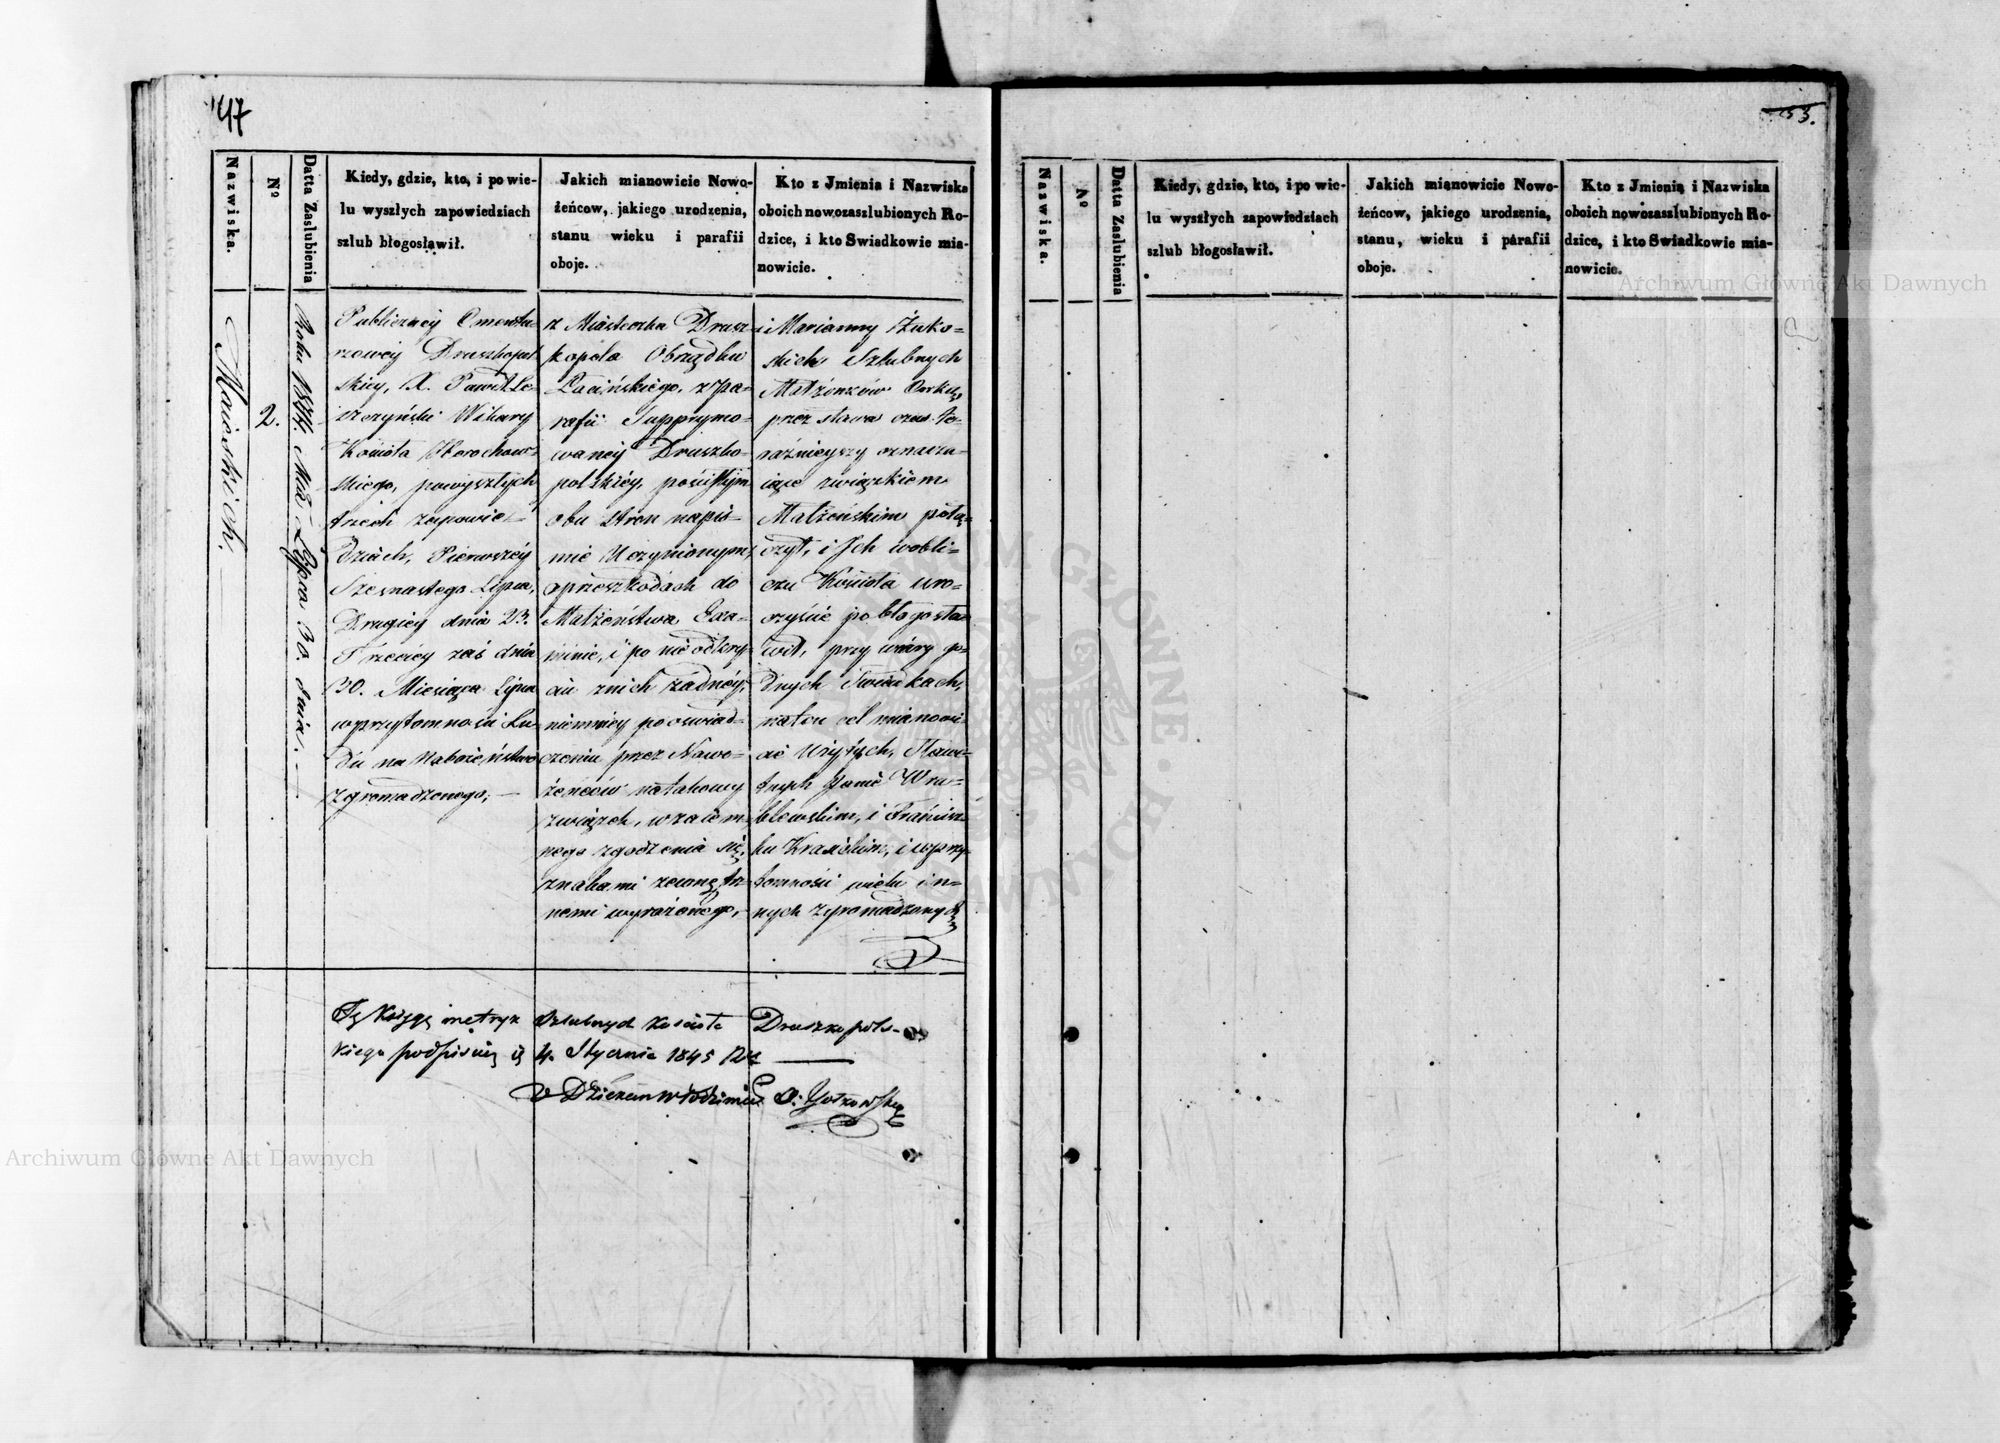 147
Nazwiska.
Nº
Datta Zaslubienia
Kiedy, gdzie, kto, i po wie-
lu wyszłych zapowiedziach
szlub błogosławił.
Jakich mianowicie Nowo-
żeńcow, jakiego urodzenia,
stanu wieku i parafii
oboje.
Kto z Jmienia i Nazwiska
oboich nowozaszlubionych Ro-
dzice, i kto Swiadkowie mia-
nowicie.
2.
Roku 1844. Mca Lipca 30. dnia.
Publiczney Cmenta-
rzowey Druszkopol
skiey, X. Paweł Le-
szczyński Wikary
Kościoła Horochow-
skiego, powyszłych
trzech zapowie-
dziach, Pierwszey
Szesnastego Lipca,
Drugiey dnia 23.
Trzeciey zaś dnia
30. Miesiąca Lipca
wprzytomności Lu-
du na Nabożeństwo
zgromadzonego,
z Miasteczka Drusz-
kopola Obrządku
Łacińskiego, z Pa-
rafii Supprymo-
waney Druszko-
polskiéy, pościsłym
obu stron napis-
mie Uczynionym,
oprzeszkodach do
Małżeństwa Exa-
minie, i po nieodkry-
ciu znich żadnéy,
niemniey pooswiad-
czeniu przez Nowo-
żeńców natakowy
związek, wzaiem-
nego zgodzenia się,
znakami zewnętrz-
nemi wyrażonego,
i Marianny Żuko-
skich Szlubnych
Małżonków Corką
przez słowa czas te-
raźnieyszy oznacza-
iące związkiem
Małżeńskim połą-
czył, i Ich wobli-
czu Kościoła uro-
czyście pobłogosła-
wił, przy wiary go-
dnych Swiadkach,
naten cel mianowi-
cie Użytych, Sławe-
tnych Janie Wru-
blewskim, i Francisz-
ku Krasickim, i wprzy-
tomności wielu in-
nych zgromadzonych
Tę Księgę metryk Szlubnych Kościoła Druszkopols-
kiego podpisuię 4. Stycznia 1845
Dziekan Włodzimie
53.
Nazwiska.
Nº
Datta Zaslubienia
Kiedy, gdzie, kto, i po wie-
lu wyszłych zapowiedziach
szlub błogosławił.
Jakich mianowicie Nowo-
żeńcow, jakiego urodzenia,
stanu, wieku i parafii
oboje.
Kto z Jmienia i Nazwiska
oboich nowozaszlubionych Ro-
dzice, i kto Swiadkowie mia-
nowicie.
Archiwum Główne Akt Dawnych
Archiwum Główne Akt Dawnych